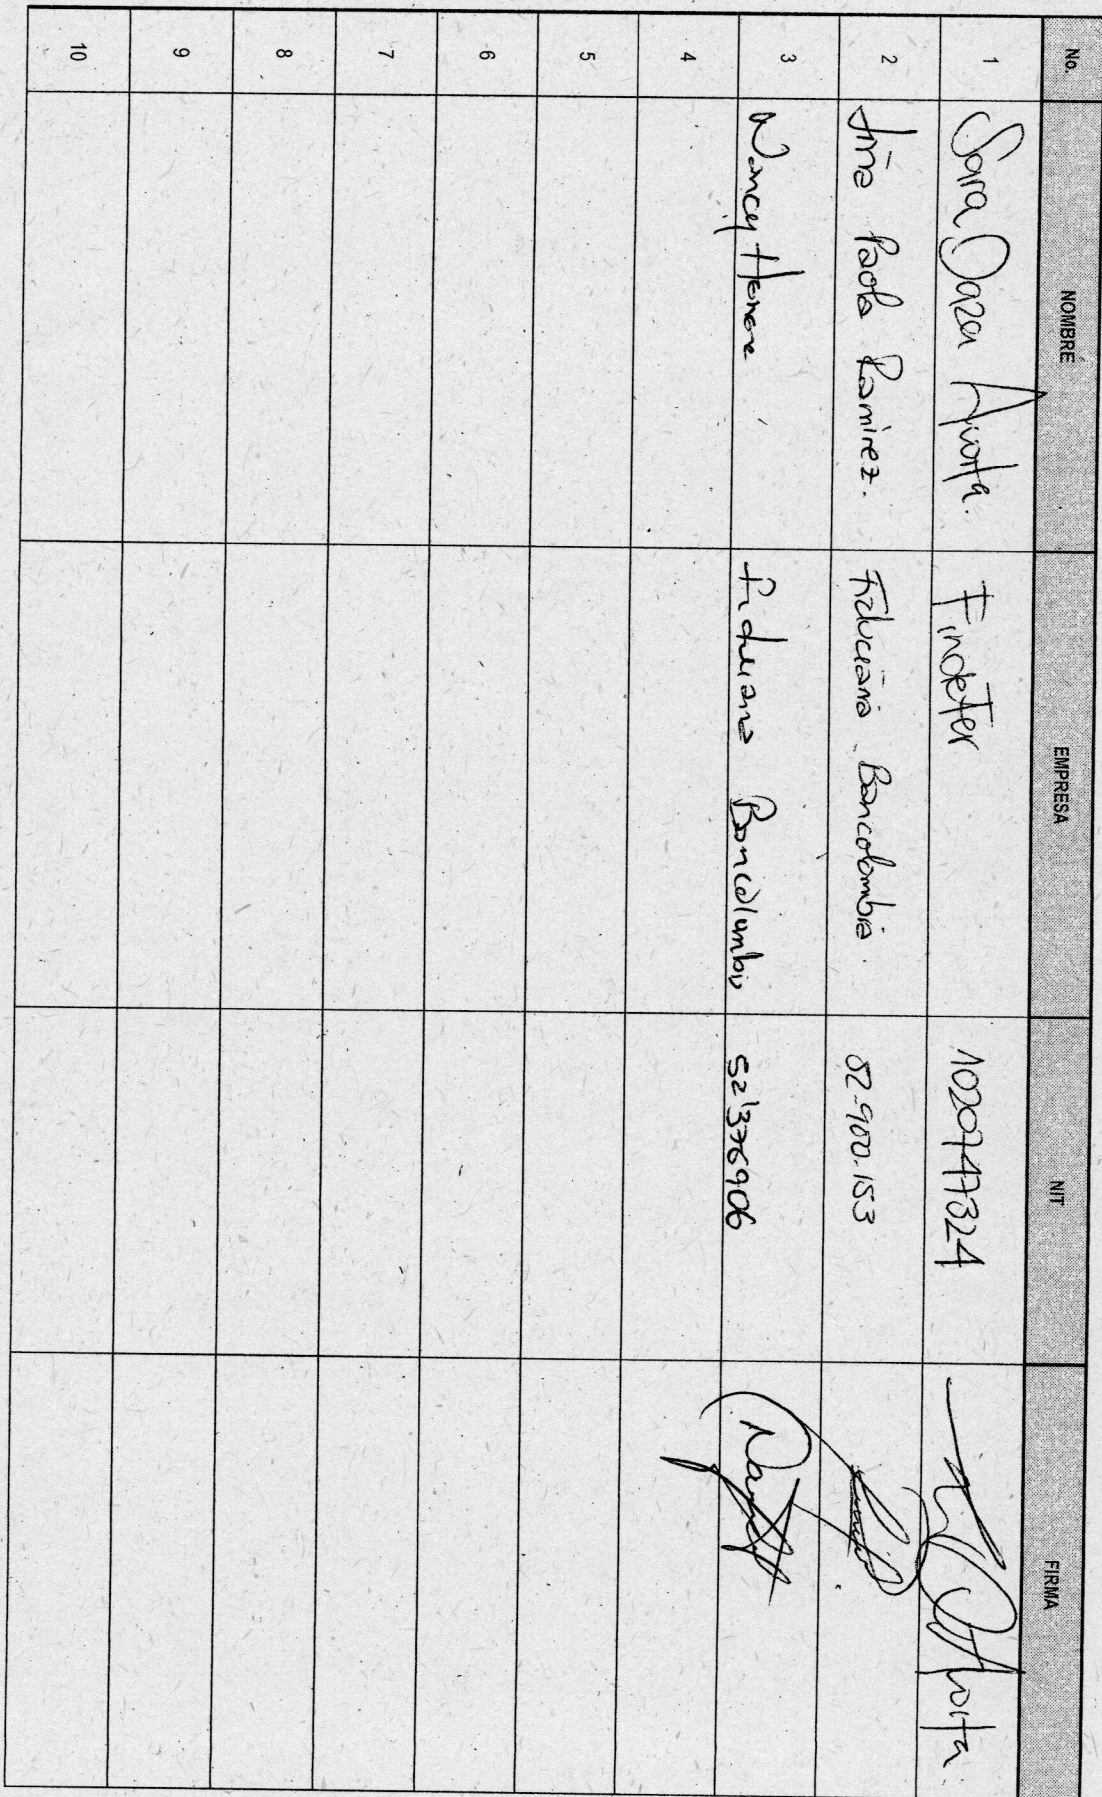 No. NOMBRE EMPRESA NIT FIRMA
1 Sara Daza Findeter 1020747324
2 Paola Ramirez. Fiduciaria Bancolombia. 52.900.153
3 Nancy Fiduciaria Bancolombia 52'376906
4
5
6
7
8
9
10